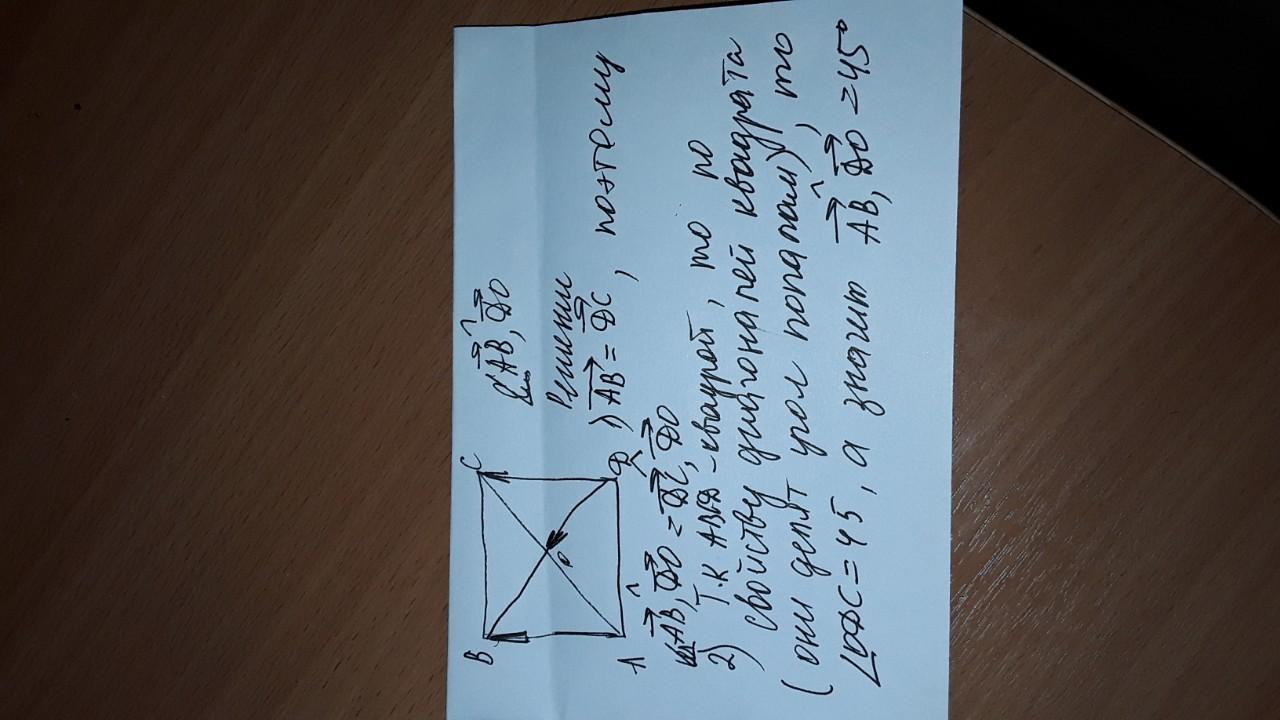 B C
A D
O
AB, DO
Решении
1) AB = DC, поэтому
AB, DO = DC, DO
2) Т.к ABCD - квадрат, то по
свойству диагоналей квадрата
(они делят угол пополам), то
∠ODC = 45, а значит AB, DO = 45°